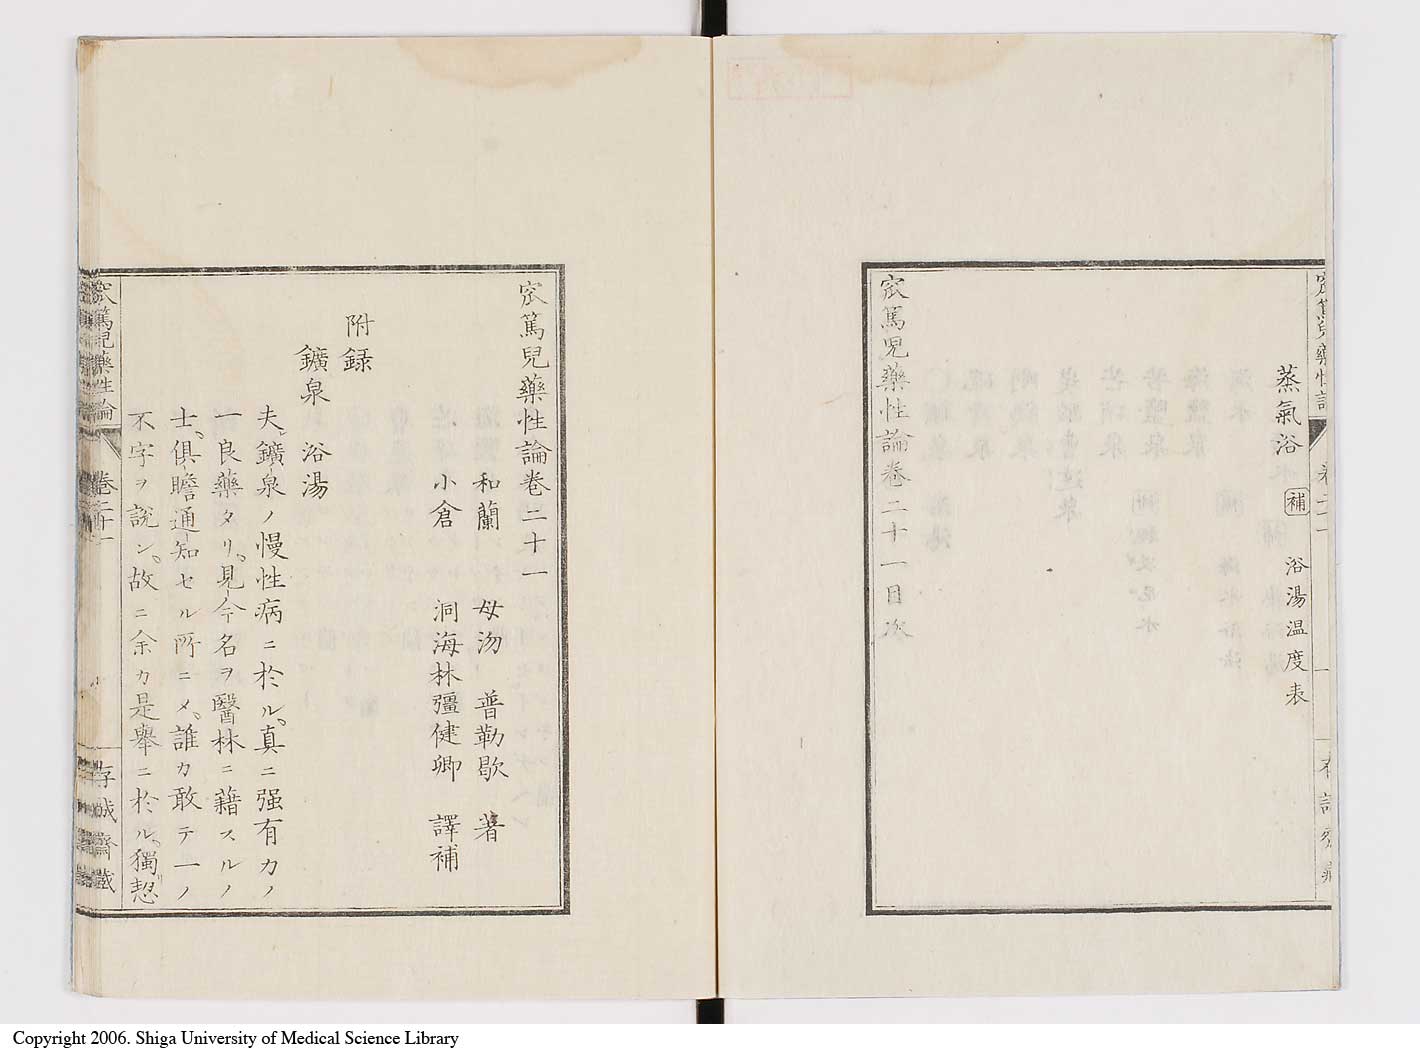 蒸氣浴 補 浴湯温度表
窊篤児藥性論卷二十一目次
窊篤兒藥性論卷二十一
和蘭 母汤 普勒歇 著
小倉 洞海林彊健卿 譯補
附録
鑛泉 浴湯
夫鑛泉ノ慢性病ニ於ル、真ニ强有力ノ
一良藥タリ、見今名ヲ醫林ニ藉スルノ
士、俱瞻通知セル所ニメ、誰カ敢テ一ノ
不字ヲ說ン、故ニ余カ是舉ニ於ル、獨恝
窊篤兒藥性論 卷二十一 存誠齋藏
Copyright 2006. Shiga University of Medical Science Library